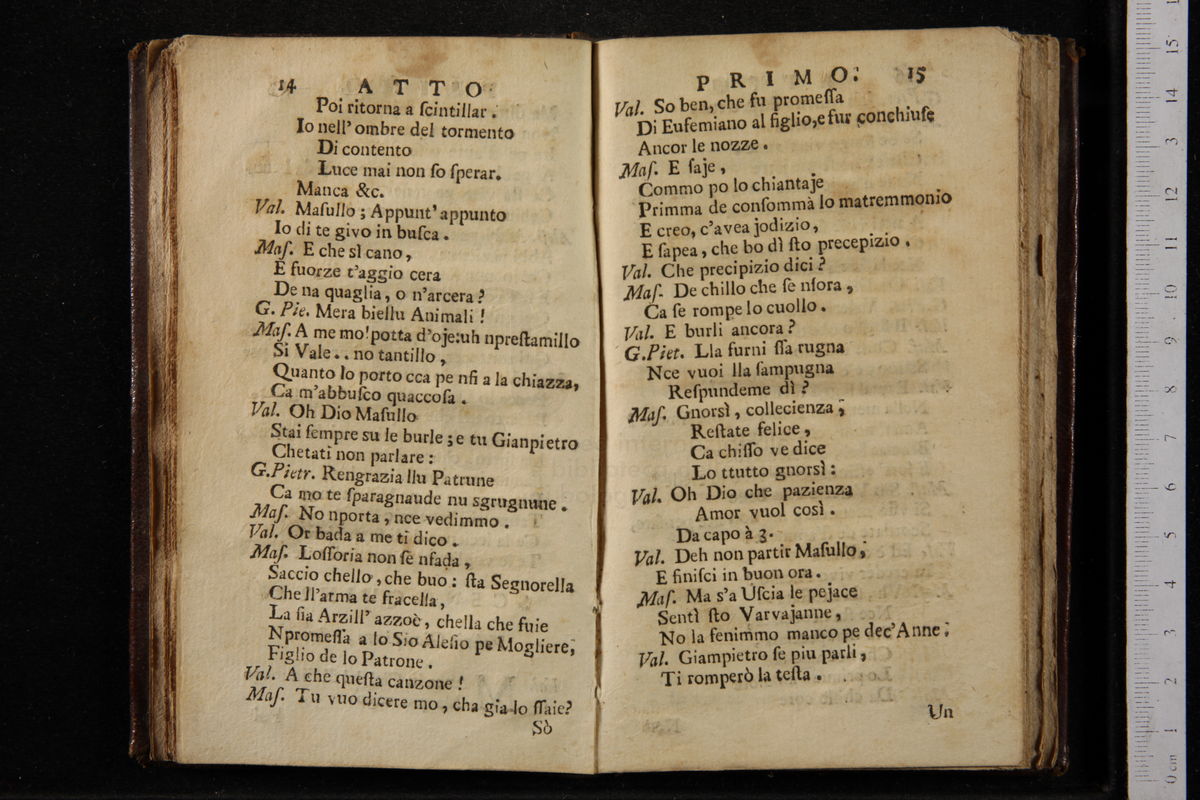 14 ATTO
Poi ritorna a ſcintillar.
Io nell' ombre del tormento
Di contento
Luce mai non ſo ſperar.
Manca &c.
Val. Maſullo; Appunt' appunto
Io di te givo in buſca.
Maſ. E che sì cano,
E fuorze t'aggio cera
De na quaglia, o n'arcera?
G. Pie. Mera biellu Animali!
Maſ. A me mo! potta d'oje: uh npreſtamillo
Si Vale.. no tantillo,
Quanto lo porto cca pe nſi a la chiazza,
Ca m'abbuſco quaccoſa.
Val. Oh Dio Maſullo
Stai ſempre su le burle; e tu Gianpietro
Chetati non parlare:
G. Pietr. Rengrazia llu Patrune
Ca mo te ſparagnaude nu sgrugnune.
Maſ. No nporta, nce vedimmo.
Val. Or bada a me ti dico.
Maſ. Loſſoria non ſe nfada,
Saccio chello, che buo: ſta Segnorella
Che ll'arma te fracella,
La ſia Arzill' azzoè, chella che fuie
Npromeſſa a lo Sio Aleſio pe Mogliere,
Figlio de lo Patrone.
Val. A che queſta canzone!
Maſ. Tu vuo dicere mo, cha gia lo ſſaie?
Sò
PRIMO. 15
Val. So ben, che fu promeſſa
Di Eufemiano al figlio, e fur conchiuſe
Ancor le nozze.
Maſ. E ſaje,
Commo po lo chiantaje
Primma de conſommà lo matremmonio
E creo, c'avea jodizio,
E ſapea, che bo dì ſto precepizio.
Val. Che precipizio dici?
Maſ. De chillo che ſe nſora,
Ca ſe rompe lo cuollo.
Val. E burli ancora?
G. Piet. Lla furni ſſa rugna
Nce vuoi lla ſampugna
Reſpundeme dì?
Maſ. Gnorsì, collecienza;
Reſtate felice,
Ca chiſſo ve dice
Lo ttutto gnorsì:
Val. Oh Dio che pazienza
Amor vuol così.
Da capo à 3.
Val. Deh non partir Maſullo,
E finiſci in buon ora.
Maſ. Ma s'a Uſcia le pejace
Sentì ſto Varvajanne,
No la fenimmo manco pe dec'Anne.
Val. Giampietro ſe piu parli,
Ti romperò la teſta.
Un
0 cm 1 2 3 4 5 6 7 8 9 10 11 12 13 14 15